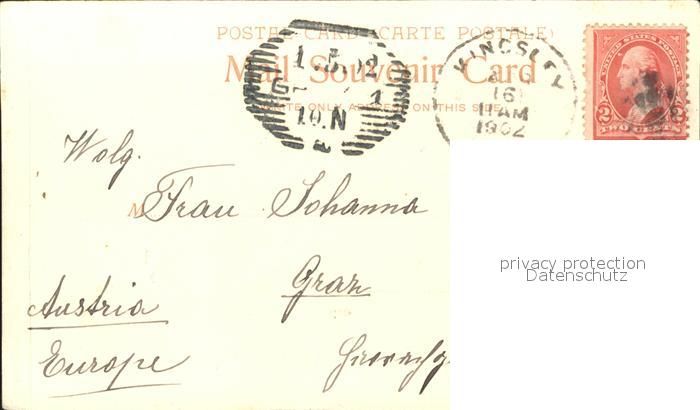 POSTAL CARD (CARTE POSTALE)
Mail Souvenir Card
WRITE ONLY ADDRESS ON THIS SIDE
1.5.02
10.N
KINGSLEY
16
11AM
1902
UNITED STATES POSTAGE
2 2
TWO CENTS
Wolg.
M Frau Johanna
Graz
Austria
Europe
privacy protection
Datenschutz